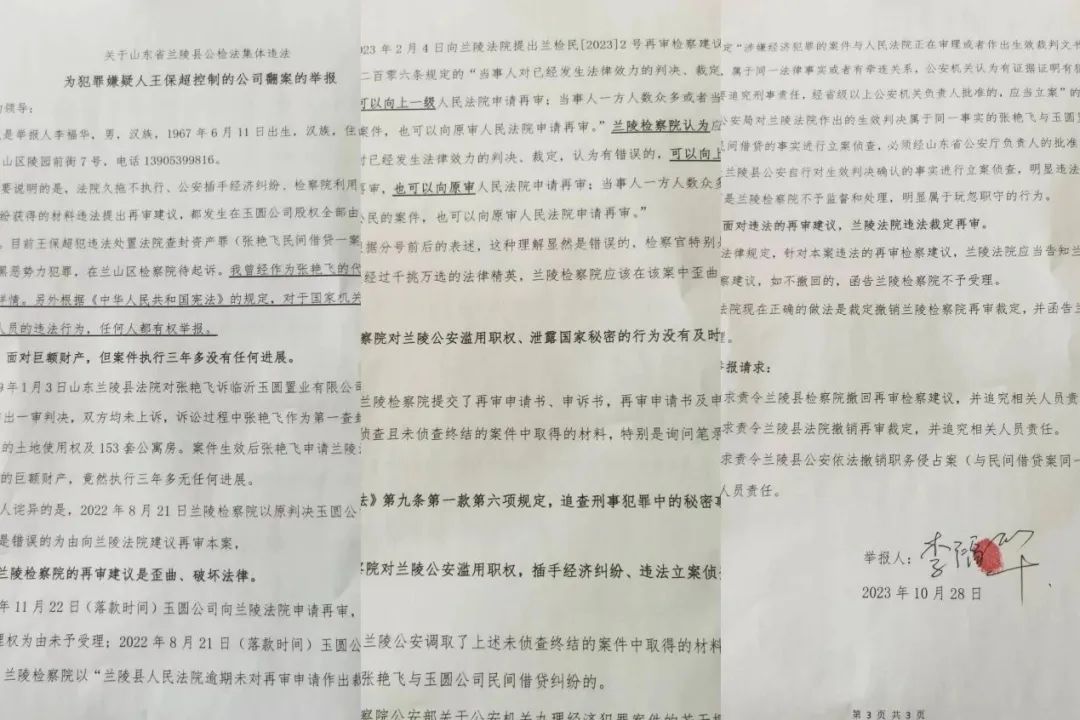 关于山东省兰陵县公检法集体违法
为犯罪嫌疑人王保超控制的公司翻案的举报
领导：
是举报人李福华，男，汉族，1967 年 6 月 11 日出生，汉族，住
山区陵园前街 7 号，电话 13905399816。
要说明的是，法院久拖不执行、公安插手经济纠纷、检察院利用
纷获得的材料违法提出再审建议，都发生在玉圆公司股权全部由
。目前王保超犯违法处置法院查封资产罪（张艳飞民间借贷一案
黑恶势力犯罪，在兰山区检察院待起诉。我曾经作为张艳飞的代
详情。另外根据《中华人民共和国宪法》的规定，对于国家机关
人员的违法行为，任何人都有权举报。
面对巨额财产，但案件执行三年多没有任何进展。
9 年 1 月 3 日山东兰陵县法院对张艳飞诉临沂玉圆置业有限公司
出一审判决，双方均未上诉，诉讼过程中张艳飞作为第一查封
的土地使用权及 153 套公寓房。案件生效后张艳飞申请兰陵
的巨额财产，竟然执行三年多无任何进展。
人诧异的是，2022 年 8 月 21 日兰陵检察院以原判决玉圆公
是错误的为由向兰陵法院建议再审本案，
兰陵检察院的再审建议是歪曲、破坏法律。
年 11 月 22 日（落款时间）玉圆公司向兰陵法院申请再审，
理权为由未予受理；2022 年 8 月 21 日（落款时间）玉圆
兰陵检察院以“兰陵县人民法院逾期未对再审申请作出裁
23 年 2 月 4 日向兰陵法院提出兰检民[2023]2 号再审检察建议
二百零六条规定的“当事人对已经发生法律效力的判决、裁定，
可以向上一级人民法院申请再审；当事人一方人数众多或者当
案件，也可以向原审人民法院申请再审。”兰陵检察院认为应
对已经发生法律效力的判决、裁定，认为有错误的，可以向上
再审，也可以向原审人民法院申请再审；当事人一方人数众多
公民的案件，也可以向原审人民法院申请再审。”
据分号前后的表述，这种理解显然是错误的，检察官特别是
经过千挑万选的法律精英，兰陵检察院应该在该案中歪曲
察院对兰陵公安滥用职权、泄露国家秘密的行为没有及时
兰陵检察院提交了再审申请书、申诉书，再审申请书及申
侦查且未侦查终结的案件中取得的材料，特别是询问笔录
法》第九条第一款第六项规定，追查刑事犯罪中的秘密事
察院对兰陵公安滥用职权，插手经济纠纷、违法立案侦
兰陵公安调取了上述未侦查终结的案件中取得的材料
张艳飞与玉圆公司民间借贷纠纷的。
察院公安部关于公安机关办理经济犯罪案件的若干规
定“涉嫌经济犯罪的案件与人民法院正在审理或者作出生效裁判文书
，属于同一法律事实或者有牵连关系，公安机关认为有证据证明有犯
要追究刑事责任，经省级以上公安机关负责人批准的，应当立案”的
公安局对兰陵法院作出的生效判决属于同一事实的张艳飞与玉圆
民间借贷的事实进行立案侦查，必须经山东省公安厅负责人的批准
兰陵县公安自行对生效判决确认的事实进行立案侦查，明显违法
是兰陵检察院不予监督和处理，明显属于玩忽职守的行为。
面对违法的再审建议，兰陵法院违法裁定再审。
法律规定，针对本案违法的再审检察建议，兰陵法院应当告知兰
察建议，如不撤回的，函告兰陵检察院不予受理。
法院现在正确的做法是裁定撤销兰陵检察院再审裁定，并函告兰
理。
举报请求：
求责令兰陵县检察院撤回再审检察建议，并追究相关人员责
求责令兰陵县法院撤销再审裁定，并追究相关人员责任。
求责令兰陵县公安依法撤销职务侵占案（与民间借贷案同一
人员责任。
举报人：李福华
2023 年 10 月 28 日
第 3 页 共 3 页